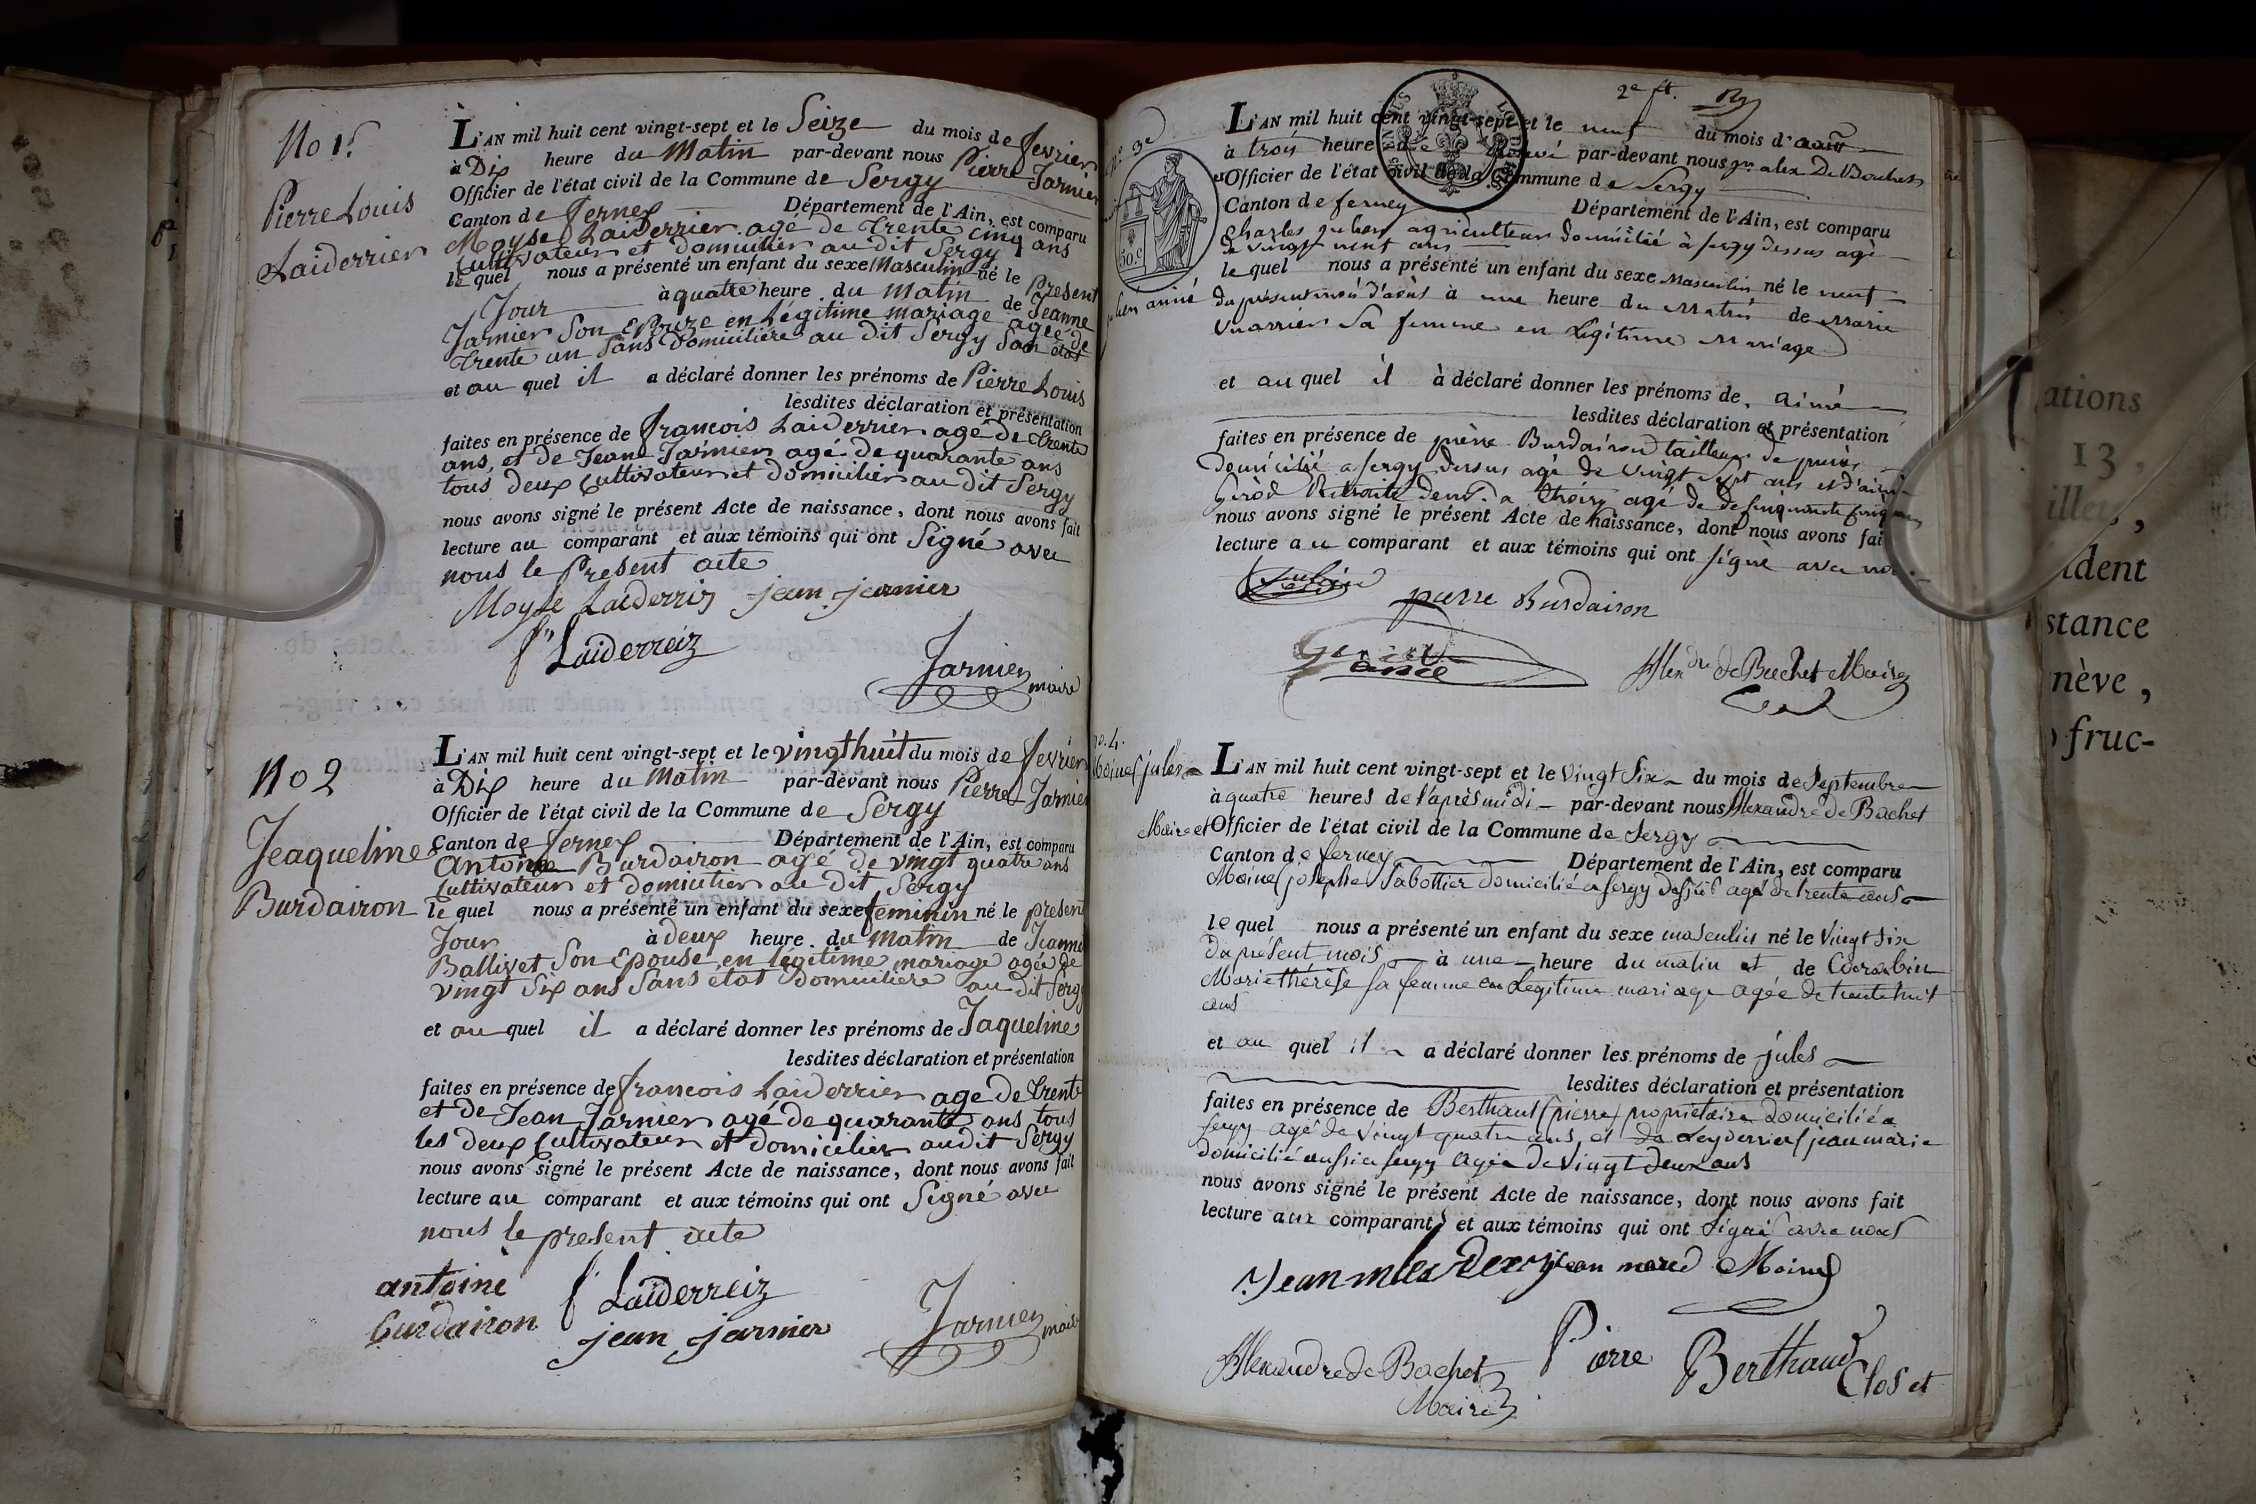 No 1er
Pierre Louis
Laiderrier
L'AN mil huit cent vingt-sept et le Seize du mois de fevrier
à Dix heure du Matin par-devant nous Pierre Jarnier
Officier de l'état civil de la Commune de Sergy
Canton de Fernex Département de l'Ain, est comparu
Moyse Laiderrier agé de trente cinq ans
Cultivateur et domicilier au dit Sergy
le quel nous a présenté un enfant du sexe Masculin né le Présent
Jour à quatre heure du Matin de Jeanne
Jarnier Son Epouze en Légitime mariage agée de
trente un Sans domicilière au dit Sergy San état
et au quel il a déclaré donner les prénoms de Pierre Louis
lesdites déclaration et présentation
faites en présence de francois Laiderrier agé de trente
ans, et de Jean Jarnier agé de quarante ans
tous deux Cultivateur et domicilier au dit Sergy
nous avons signé le présent Acte de naissance, dont nous avons fait
lecture au comparant et aux témoins qui ont Signé avec
nous le Present acte
Moyse Laiderriz jean jarnier
f Laiderreiz
Jarnier maire
No 2
Jeaqueline
Burdairon
L'AN mil huit cent vingt-sept et le vingt huit du mois de fevrier
à Dix heure du Matin par-devant nous Pierre Jarnier
Officier de l'état civil de la Commune de Sergy
Canton de Fernex Département de l'Ain, est comparu
Antoine Burdairon agé de vingt quatre ans
Cultivateur et domicilier au dit Sergy
le quel nous a présenté un enfant du sexe feminin né le present
Jour à deux heure du Matin de Jeanne
Ballivet Son Epouse en légitime mariage agée de
vingt Six ans Sans état domicilière au dit Sergy
et au quel il a déclaré donner les prénoms de Jaqueline
lesdites déclaration et présentation
faites en présence de francois Laiderrier age de trente
et de Jean Jarnier agé de quarante ans tous
les deux Cultivateur et domicilier au dit Sergy
nous avons signé le présent Acte de naissance, dont nous avons fait
lecture au comparant et aux témoins qui ont Signé avec
nous le present acte
antoine
Burdairon
f Laiderreiz
jean jarnier
Jarnier maire
2e ft.
No 3e
julien aimé
L'AN mil huit cent vingt-sept et le neuf du mois d'août
à trois heure par-devant nous alex De Bachet
Officier de l'état civil de la Commune de Sergy
Canton de ferney Département de l'Ain, est comparu
Charles julien agriculteur domicilié à sergy dessus agé
de vingt neuf ans
le quel nous a présenté un enfant du sexe Masculin né le neuf
du présent mois d'août à une heure du Matin de Marie
sa femme en Légitime Mariage
et au quel il à déclaré donner les prénoms de aimé
lesdites déclaration et présentation
faites en présence de pierre Burdairon tailleur de pierre
domicilié a sergy dessus agé de vingt sept ans et d'aimé
Girod a thoiry agé de cinquante cinq ans
nous avons signé le présent Acte de naissance, dont nous avons fai
lecture au comparant et aux témoins qui ont signé avec
julien
pierre Burdairon
Alexdre de Bachet Maire
no. 4.
Moine jules
L'AN mil huit cent vingt-sept et le vingt six du mois de Septembre
à quatre heures de l'après midi par-devant nous Alexandre de Bachet
Maire et Officier de l'état civil de la Commune de Sergy
Canton de ferney Département de l'Ain, est comparu
Moine (josephe) Sabottier domicilié a sergy dessus agé de trente ans
le quel nous a présenté un enfant du sexe masculin né le vingt six
du présent mois à une heure du matin et de
Marie thérèse sa femme en Légitime mariage agée de trente huit
ans
et au quel il a déclaré donner les prénoms de jules
lesdites déclaration et présentation
faites en présence de Berthaut (pierre) propriétaire domicilié a
sergy agé de vingt quatre ans, et de Leyderrier (jean marie
domicilié aussi a sergy agée de vingt deux ans
nous avons signé le présent Acte de naissance, dont nous avons fait
lecture aux comparants et aux témoins qui ont signé avec nous
Moine
Pierre Berthaud
Alexandre de Bachet
Maire
Closet
ations
13,
dent
stance
nève,
fruc-